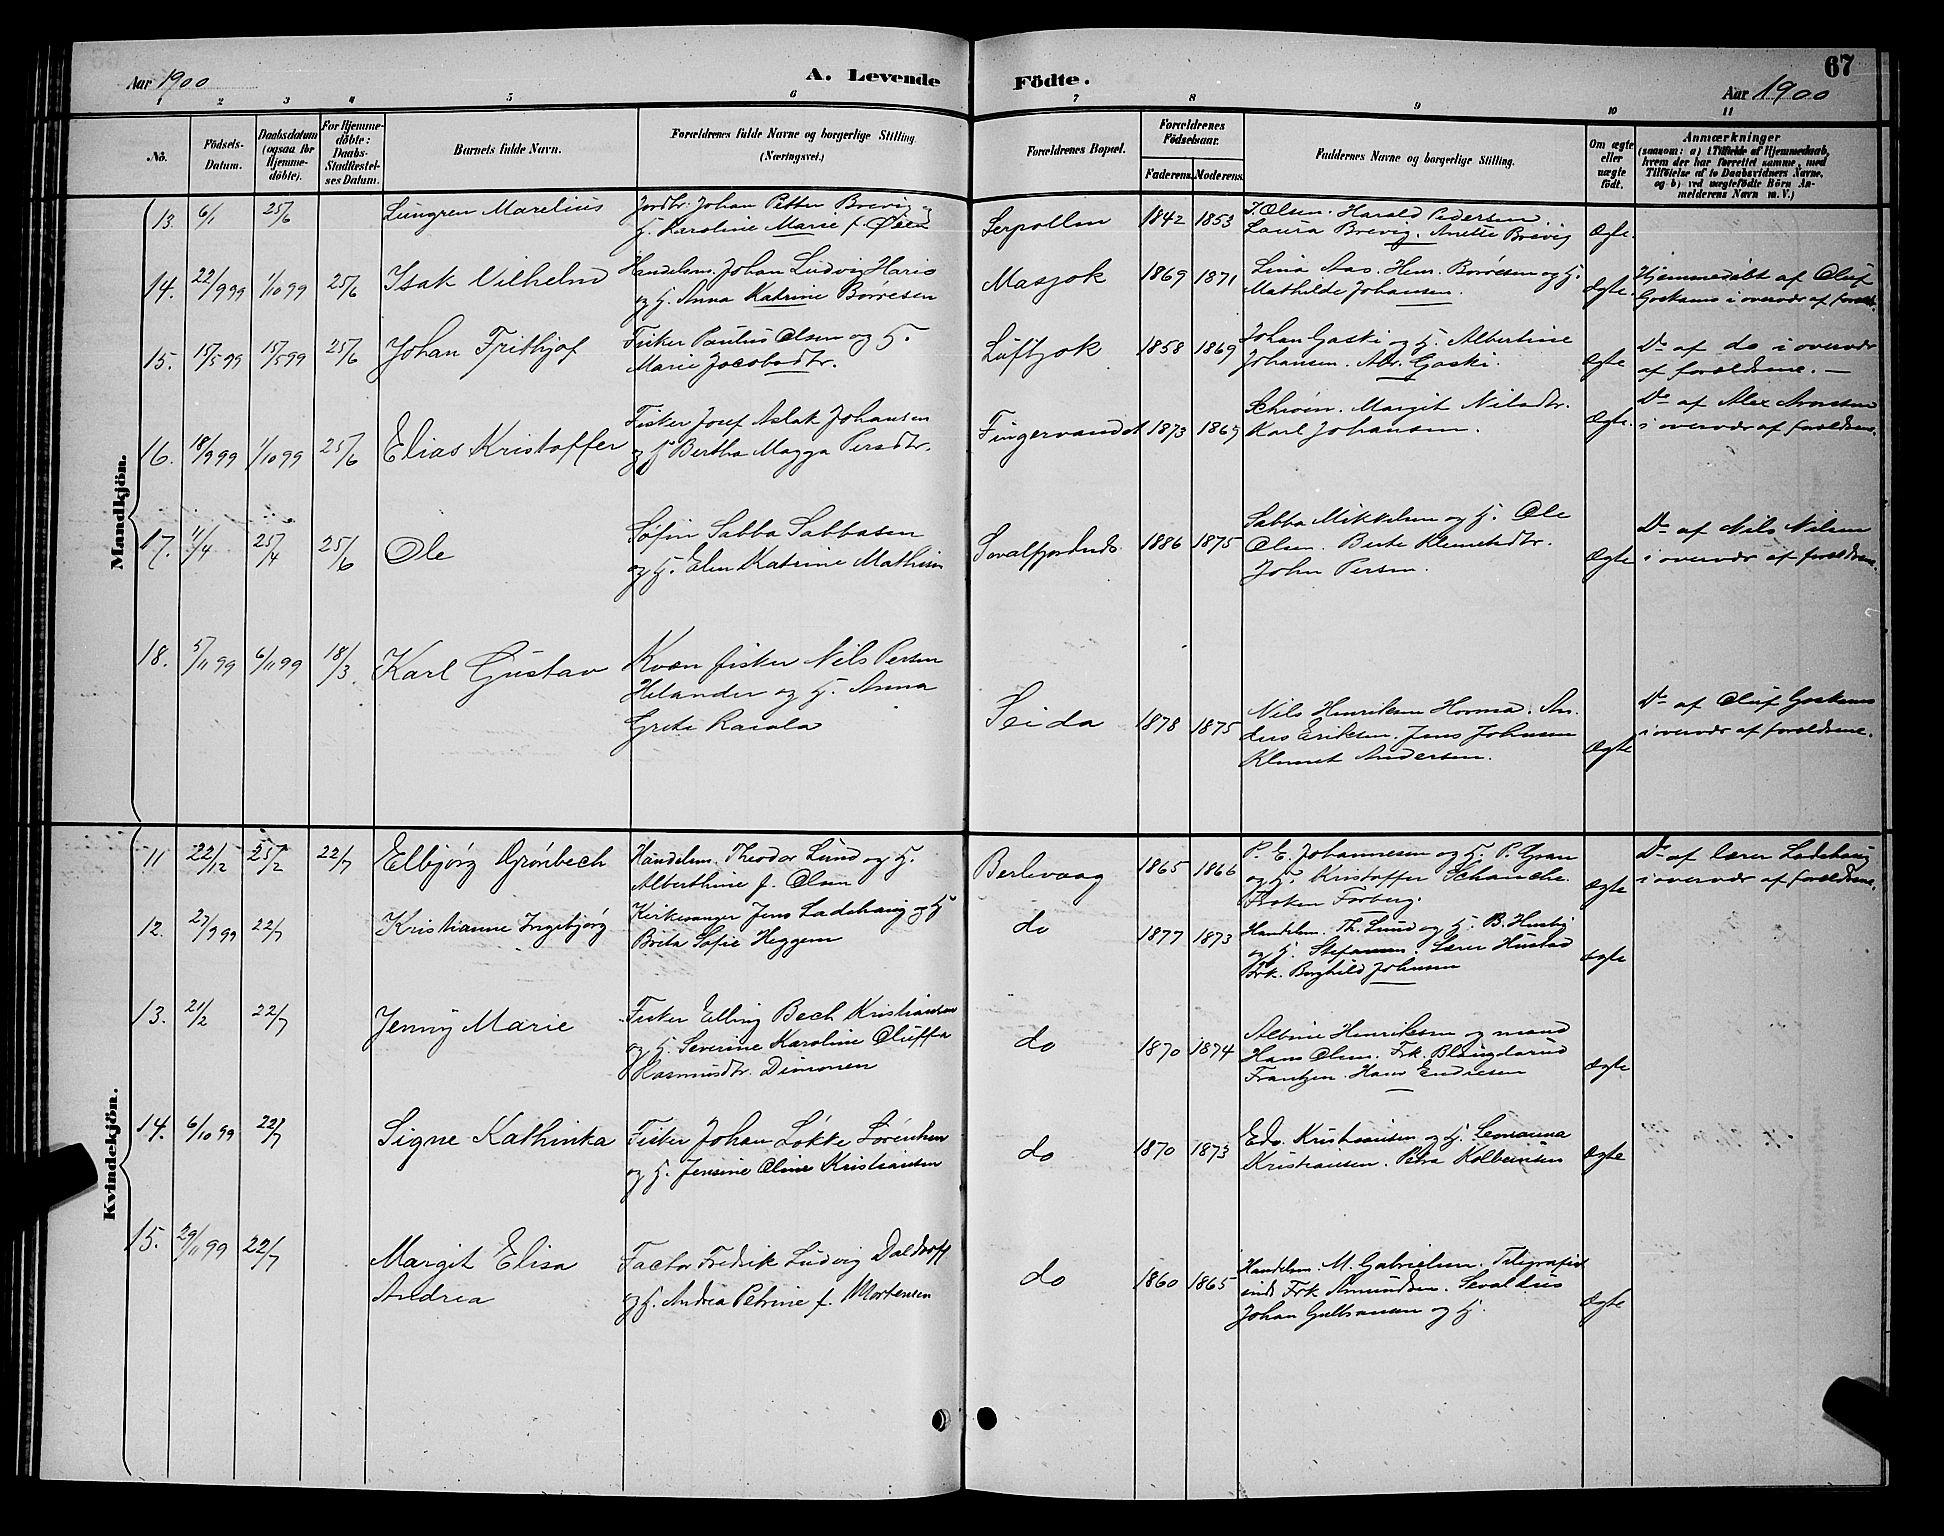 67
Aar 1900
A. Levende Födte.
Aar 1900
1 2 3 4 5 6 7 8 9 10 11
No.
Födsels-Datum.
Daabsdatum (ogsaa for Hjemme-döbte).
For Hjemme-döbte: Daabs-Stadfæstel-ses Datum.
Barnets fulde Navn.
Forældrenes fulde Navne og borgerlige Stilling.
(Næringsvei.)
Forældrenes Bopæl.
Forældrenes Födselsaar.
Faderens. Moderens.
Faddernes Navne og borgerlige Stilling.
Om ægte eller uægte födt.
Anmærkninger
(saasom: a) i Tilfælde af Hjemmedaab, hvem der har forrettet samme, med Tilföielse af to Daabsvidners Navne, og b) ved uægtefödte Börn Anmelderens Navn m. V.)
Mandkjön.
13. 6/1 25/6 Lungren Marelius
Jordbr. Johan Petter Brevig og
H. Karoline Marie f. Olsen
Serpollen 1842 1853
T. Olsen. Harald Pedersen.
Laura Brevig. Anette Brevig
Ægte.
14. 22/9 99 1/10 99 25/6 Isak Vilhelm
Handelsm. Johan Ludvig Hario
og H. Anna Katrine Borresen
Masjok 1869 1871
Lina Aas. Henr. Borresen og H.
Mathilde Johansen.
Ægte.
Hjemmedøbt af Oluf
i overvær af foræld.
15. 15/5 99 15/5 99 25/6 Johan Frithjof
Fisker Paulus Olsen og H.
Marie Jacobsdtr.
Luftjok 1858 1869
Johan Gaski og H. Albertine
Johansen. Abr. Gaski.
Ægte
Do af do i overvær
af forældrene. —
16. 18/9 99 1/10 99 25/6 Elias Kristoffer
Fisker Josef Aslak Johansen
og H Bertha Magga Persdtr.
Fingervandet 1873 1865
Margit Nilsdtr.
Karl Johansen.
Ægte.
Do af Alex Aronsen
i overvær af forældrene.
17. 11/4 25/4 25/6 Ole
Søfin Sabba Sabbasen
og H. Elen Katrine Mathisen
1886 1875
Sabba Mikkelsen og H. Ole
Olsen. Berte Klemetsdtr.
John Persen.
Ægte
Do af Nils Nilsen
i overvær af forældrene.
18. 5/11 99 6/11 99 18/3. Karl Gustav
Kvæn fisker Nils Persen
Helander og H. Anna
Grete
Seida 1878 1875
Nils Henriksen An-
ders Eriksen. Jens Johnsen
Klemet Andersen.
Ægte
Do af Oluf
i overvær af forældrene.
Kvindekjön.
11 22/12 25/2 22/7 Elbjørg Grønbech
Handelsm. Theodor Lund og H.
Alberthine f. Olsen
Berlevaag 1865 1866
P. E. Johannesen og H. P. Gran
og H. Kristoffer Schanche.
Frøken Forberg.
Ægte
Do af lærer Ladehaug
i overvær af forældrene.
12. 27/9 99 22/7 Kristianne Ingebjørg
Kirkesanger Jens Ladehaug og H
Brita Sofie Heggem
do 1877 1873
Handelsm. Th. Lund og H. B. Husby
og H. Lærer Hustad
Frk. Borghild Johnsen
Ægte
13. 21/2 22/7 Jenny Marie
Fisker Elling Bech Kristiansen
og H. Severine Karoline Oluffa
Rasmusdtr. Dimonen
do 1870 1874
Albine Henriksen og mand
Hans Olsen. Frk.
Frantzen. Hans Endresen
Ægte
14. 6/10 99 22/7 Signe Kathinka
Fisker Johan Løkke Lorentzen
og H. Jensine Oline Kristiansen
do 1870 1873
Edv. Kristiansen og H. Leonarda
Kristiansen. Petra Kolbensen
Ægte
15. 29/11 99 22/7 Margit Elisa
Andrea
Factor Fredrik Ludvig Daldorff
og H. Andrea Petrine f. Mortensen
do 1860 1865
Handelsm. M. Gabrielsen. Telegrafist-
inde Frk Amundsen. Sevaldus
Johan og H.
Ægte